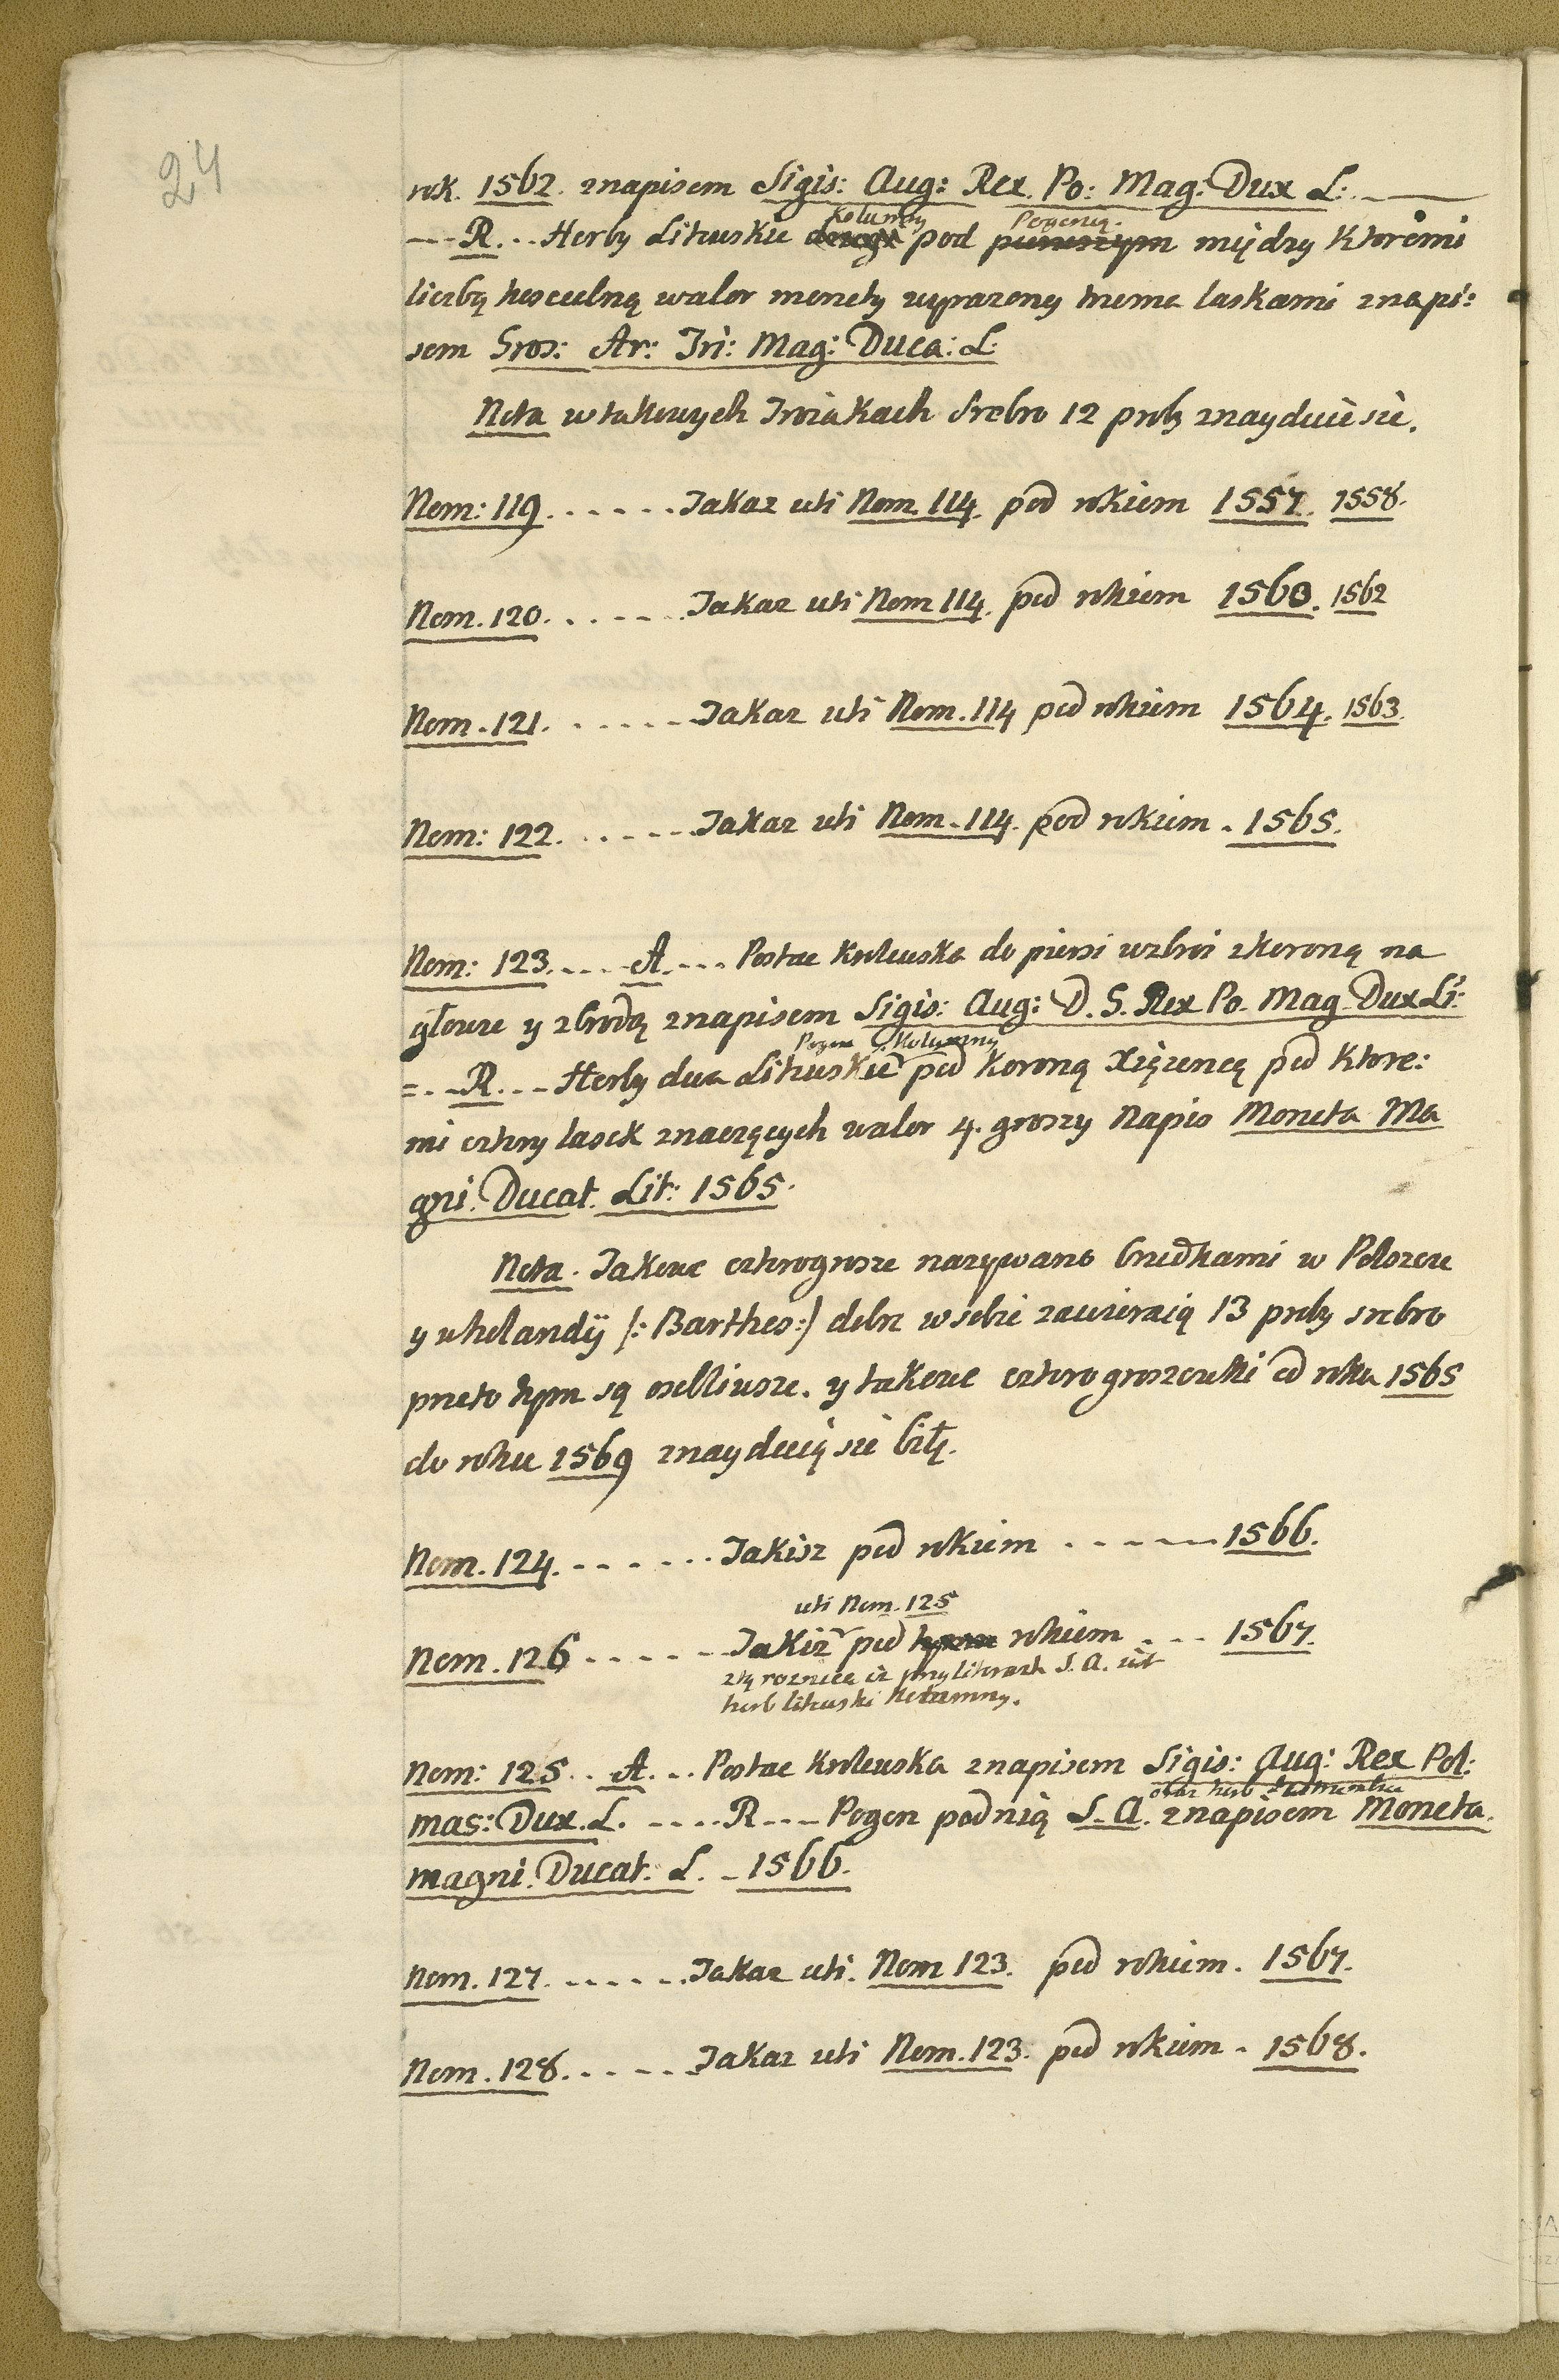 24
rok. 1562. znapisem Sigis: Aug: Rex. Po: Mag: Dux L:
R. Herby Litewskie Kolumny pod Pogonią. między ktoremi
liczbę koscielną walor monety wyrazony trzema laskami znapi:
sem Gros: Ar: Tri: Mag: Duca: L:
Nota w takowych Troiakach Srebro 12 proby znayduie sie.
Nom: 119. Takaz uti Nom. 114. pod rokiem 1557. 1558.
Nom. 120. Takaz uti Nom 114. pod rokiem 1560. 1562
Nom. 121. Takaz uti Nom. 114 pod rokiem 1564. 1563.
Nom: 122. Takaz uti Nom. 114. pod rokiem. 1565.
Nom: 123. A. Postac Krolewska do piersi wzbroi zkoroną na
głowie y zbrodą znapisem Sigis: Aug: D. G. Rex Po. Mag. Dux Li:
Pogon y Kolumny
R. Herby dwa Litewskie pod Koroną Xiązencą pod ktore:
mi cztery lasek znaczących walor 4. groszy Napis Moneta Ma
gni. Ducat. Lit: 1565.
Nota. Takowe cztrogrosze nazywano brodkami w Polszcze
y wholandÿ /: Barthes :/ dobre w sobie zawieraią 13 proby srebro
przeto tym są osobliwsze. y takowe cztrogroszowki od roku 1565
do roku 1569 znayduią sie bitę.
Nom. 124. Takisz pod rokiem 1566.
uti Nom. 125
Nom. 126 Takiz pod rokiem 1567.
ztą roznicą iz przy literach S. A. iest
herb litewski Kolumny.
Nom: 125. A. Postac Krolewska znapisem Sigis: Aug: Rex Pol:
oraz herb
mag: Dux. L. R Pogon podnią S. A. znapisem Moneta.
magni. Ducat: L. 1566.
Nom. 127. Takaz uti. Nom 123. pod rokiem. 1567.
Nom. 128. Takaz uti Nom. 123. pod rokiem. 1568.